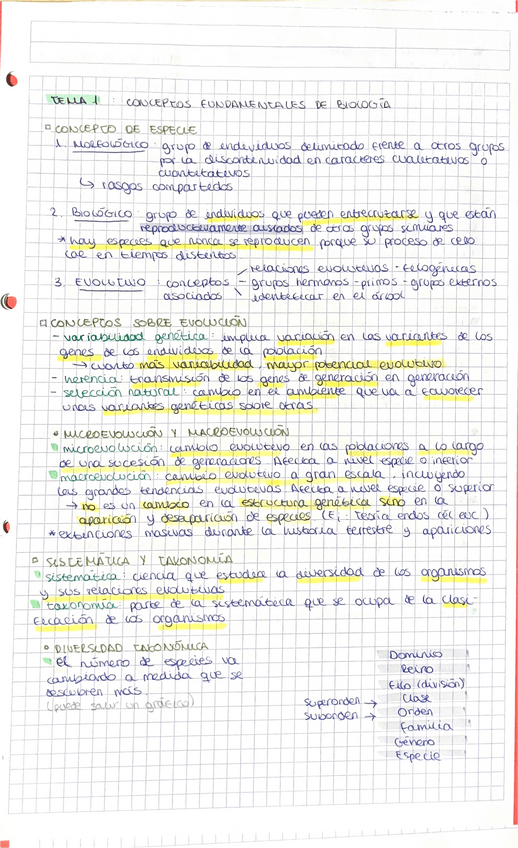 TEMA 1 : CONCEPTOS FUNDAMENTALES DE BIOLOGÍA
CONCEPTO DE ESPECIE
1. MORFOLÓGICO : grupo de individuos delimitado frente a otros grupos
por la discontinuidad en caracteres cualitativos o
cuantitativos
↳ rasgos compartidos
2. BIOLÓGICO : grupo de individuos que pueden entrecruzarse y que están
reproductivamente aislados de otros grupos similares
* hay especies que nunca se reproducen porque su proceso de celo
cae en tiempos distintos
3. EVOLUTIVO : conceptos asociados
relaciones evolutivas - filogénicas
- grupos hermanos - primos - grupos externos
identificar en el árbol
CONCEPTOS SOBRE EVOLUCIÓN
- variabilidad genética : implica variación en las variantes de los
genes de los individuos de la población
→ cuanto más variabilidad, mayor potencial evolutivo
- herencia : transmisión de los genes de generación en generación
- selección natural : cambio en el ambiente que va a favorecer
unas variantes genéticas sobre otras
• MICROEVOLUCIÓN Y MACROEVOLUCIÓN
microevolución : cambio evolutivo en las poblaciones a lo largo
de una sucesión de generaciones. Afecta a nivel especie o inferior
macroevolución : cambio evolutivo a gran escala, incluyendo
las grandes tendencias evolutivas. Afecta a nivel especie o superior
→ no es un cambio en la estructura genética sino en la
aparición y desaparición de especies (Ej: Teoría endos. cél. euc.)
* extinciones masivas durante la historia terrestre y apariciones
SISTEMÁTICA Y TAXONOMÍA
sistemática : ciencia que estudia la diversidad de los organismos
y sus relaciones evolutivas
taxonomía : parte de la sistemática que se ocupa de la clasi-
ficación de los organismos
• DIVERSIDAD TAXONÓMICA
el número de especies va
cambiando a medida que se
descubren más.
(puede salir un gráfico)
Dominio
Reino
Filo (división)
Superorden → Clase
Suborden → Orden
Familia
Género
Especie